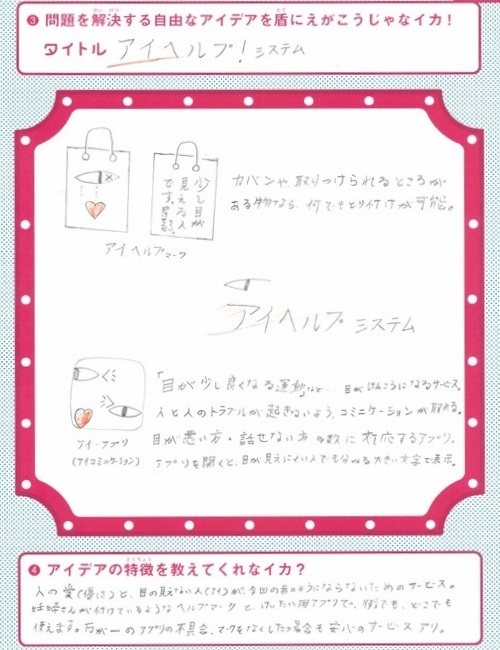 ❸ 問題を解決する自由なアイデアを盾にえがこうじゃなイカ！
タイトル アイヘルプ！システム
少し目が
見える人
です。
カバンや、取りつけられるところが
ある物なら、何でもとり付けが可能。
アイヘルプマーク
アイヘルプ システム
「目が少し良くなる運動」など… 目がけんこうになるサービス。
人と人のトラブルが起きないよう、コミニケーションが取れる。
目が悪い方・話せない方 多数に対応するアプリ。
アプリを開くと、目が見えにくい人でも分かる大きい文字で表示。
アイ・アプリ
❹ アイデアの特徴を教えてくれなイカ？
人の愛(優しさ)と、目の見えない人(アイ)が、今回の
ようにならないためのサービス。
妊婦さんが付けているようなヘルプマークと、けいたい用アプリで、
どこでも
使えます。万が一のアプリの不具合、マークをなくした場合も安心のサービスアリ。